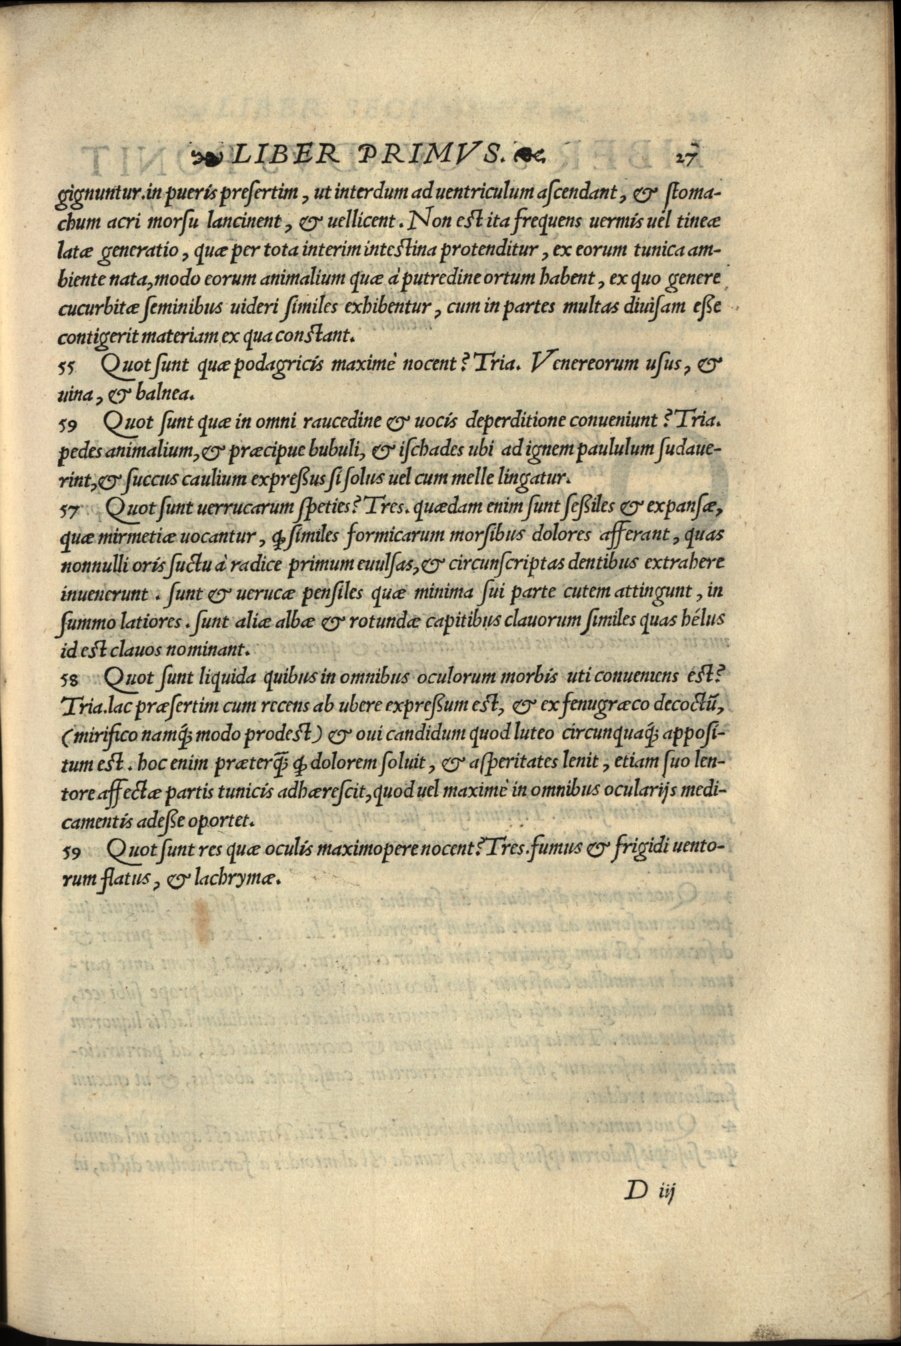 LIBER PRIMVS. 27
gignuntur. in pueris presertim, ut interdum ad uentriculum ascendant, & stoma-
chum acri morsu lancinent, & uellicent. Non est ita frequens uermis uel tineæ
latæ generatio, quæ per tota interim intestina protenditur, ex eorum tunica am-
biente nata, modo eorum animalium quæ à putredine ortum habent, ex quo genere
cucurbitæ seminibus uideri similes exhibentur, cum in partes multas diuisam esse
contigerit materiam ex qua constant.
55 Quot sunt quæ podagricis maximè nocent? Tria. Venereorum usus, &
uina, & balnea.
59 Quot sunt quæ in omni raucedine & uocis deperditione conueniunt? Tria.
pedes animalium, & præcipue bubuli, & ischades ubi ad ignem paululum sudaue-
rint, & succus caulium expressus si solus uel cum melle lingatur.
57 Quot sunt uerrucarum speties? Tres. quædam enim sunt sessiles & expansæ,
quæ mirmetiæ uocantur, ꝙ similes formicarum morsibus dolores afferant, quas
nonnulli oris suctu à radice primum euulsas, & circunscriptas dentibus extrahere
inuenerunt. sunt & uerucæ pensiles quæ minima sui parte cutem attingunt, in
summo latiores. sunt aliæ albæ & rotundæ capitibus clauorum similes quas hélus
id est clauos nominant.
58 Quot sunt liquida quibus in omnibus oculorum morbis uti conueniens est?
Tria. lac præsertim cum recens ab ubere expressum est, & ex fenugræco decoctũ,
(mirifico namq́; modo prodest) & oui candidum quod luteo circunquaq́; apposi-
tum est. hoc enim præterq̃; ꝙ dolorem soluit, & asperitates lenit, etiam suo len-
tore affectæ partis tunicis adhærescit, quod uel maximè in omnibus ocularijs medi-
camentis adesse oportet.
59 Quot sunt res quæ oculis maximopere nocent? Tres. fumus & frigidi uento-
rum flatus, & lachrymæ.
D iij